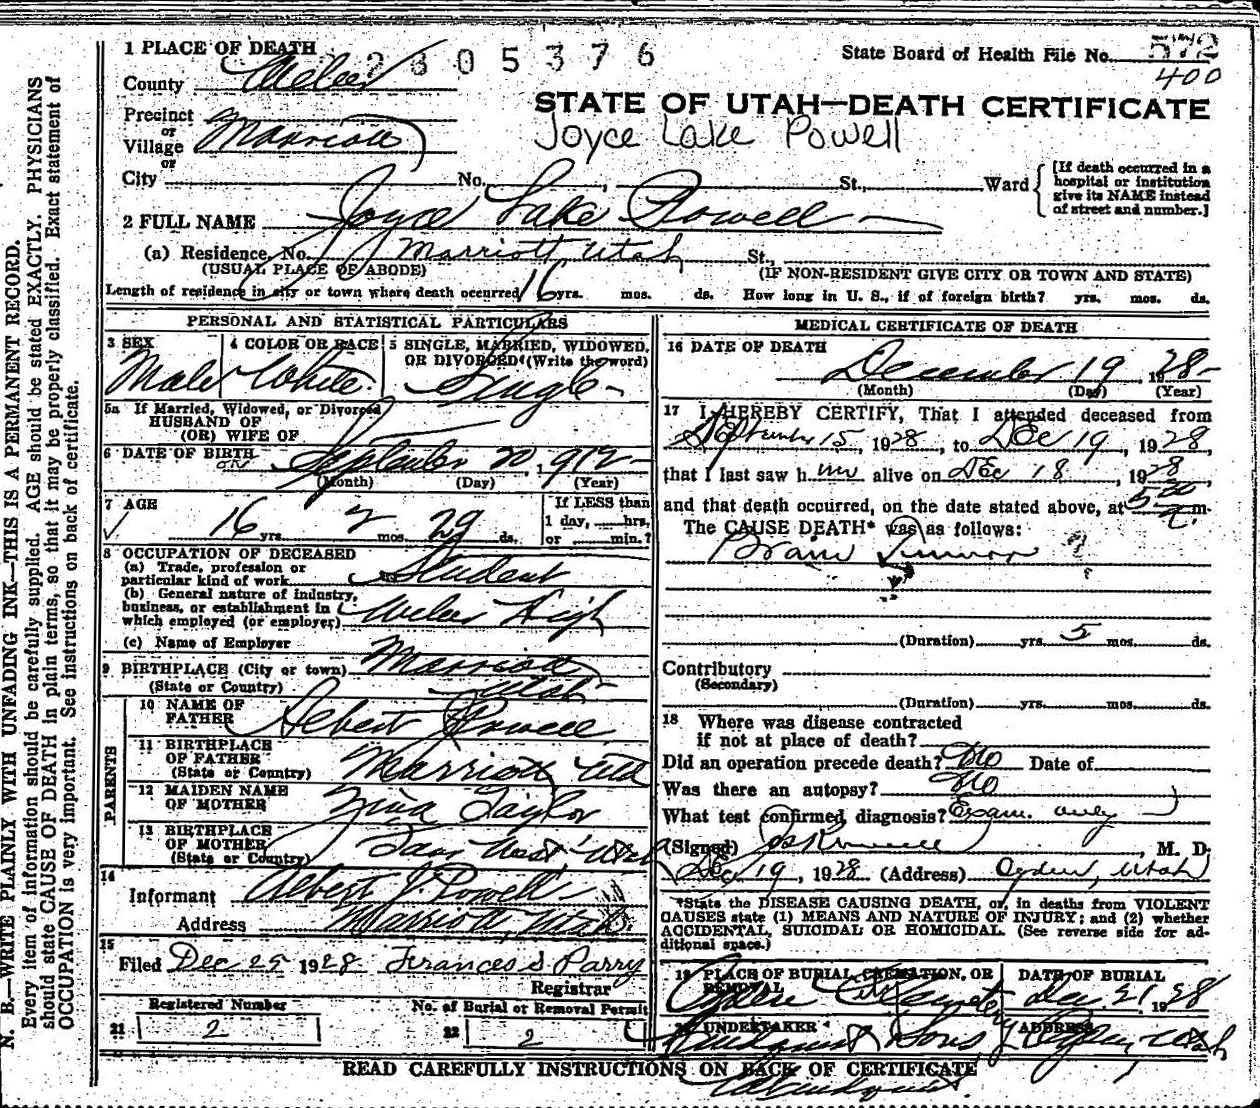 1 PLACE OF DEATH
2305376
State Board of Health File No. 572
400
County Weber
STATE OF UTAH—DEATH CERTIFICATE
Joyce Lake Powell
Precinct
or
Village Marriott
or
City No. , St., Ward
[If death occurred in a hospital or institution give its NAME instead of street and number.]
2 FULL NAME Joyce Lake Powell
(a) Residence, No. Marriott Utah St.,
(USUAL PLACE OF ABODE) (IF NON-RESIDENT GIVE CITY OR TOWN AND STATE)
Length of residence in city or town where death occurred 16 yrs. mos. ds. How long in U. S., if of foreign birth? yrs. mos. ds.
PERSONAL AND STATISTICAL PARTICULARS
3 SEX Male
4 COLOR OR RACE White
5 SINGLE, MARRIED, WIDOWED, OR DIVORCED (Write the word) Single
5a If Married, Widowed, or Divorced
HUSBAND OF
(OR) WIFE OF
6 DATE OF BIRTH September 20, 1912
(Month) (Day) (Year)
7 AGE
16 yrs. 2 mos. 29 ds.
If LESS than
1 day, hrs.
or min.?
8 OCCUPATION OF DECEASED
(a) Trade, profession or
particular kind of work Student
(b) General nature of industry,
business, or establishment in
which employed (or employer) Weber High
(c) Name of Employer
9 BIRTHPLACE (City or town) Marriott
(State or Country) Utah
PARENTS
10 NAME OF
FATHER Albert Powell
11 BIRTHPLACE
OF FATHER
(State or Country) Marriott Utah
12 MAIDEN NAME
OF MOTHER Taylor
13 BIRTHPLACE
OF MOTHER
(State or Country) West, Utah
14
Informant Albert J. Powell
Address Marriott, Utah
15
Filed Dec 25 1928 Frances S Parry
Registrar
Registered Number
21 2
No. of Burial or Removal Permit
22 2
MEDICAL CERTIFICATE OF DEATH
16 DATE OF DEATH
December 19, 1928
(Month) (Day) (Year)
17 I HEREBY CERTIFY, That I attended deceased from
September 15, 1928, to Dec 19, 1928,
that I last saw him alive on Dec 18, 1928,
and that death occurred, on the date stated above, at 5 00 a. m.
The CAUSE DEATH* was as follows:
Brain Tumor ?
(Duration) yrs. 5 mos. ds.
Contributory
(Secondary)
(Duration) yrs. mos. ds.
18 Where was disease contracted
if not at place of death?
Did an operation precede death? No Date of
Was there an autopsy? No
What test confirmed diagnosis? Exam. only
(Signed) , M. D.
Dec 19, 1928 (Address) Ogden, Utah
*State the DISEASE CAUSING DEATH, or, in deaths from VIOLENT
CAUSES state (1) MEANS AND NATURE OF INJURY; and (2) whether
ACCIDENTAL, SUICIDAL OR HOMICIDAL. (See reverse side for ad-
ditional space.)
19 PLACE OF BURIAL, CREMATION, OR
REMOVAL
Ogden City Cemetery
DATE OF BURIAL
Dec 21 1928
20 UNDERTAKER
Lindquist & Sons
ADDRESS
Ogden, Utah
READ CAREFULLY INSTRUCTIONS ON BACK OF CERTIFICATE
N. B.—WRITE PLAINLY WITH UNFADING INK—THIS IS A PERMANENT RECORD.
Every item of information should be carefully supplied. AGE should be stated EXACTLY. PHYSICIANS
should state CAUSE OF DEATH in plain terms, so that it may be properly classified. Exact statement of
OCCUPATION is very important. See instructions on back of certificate.